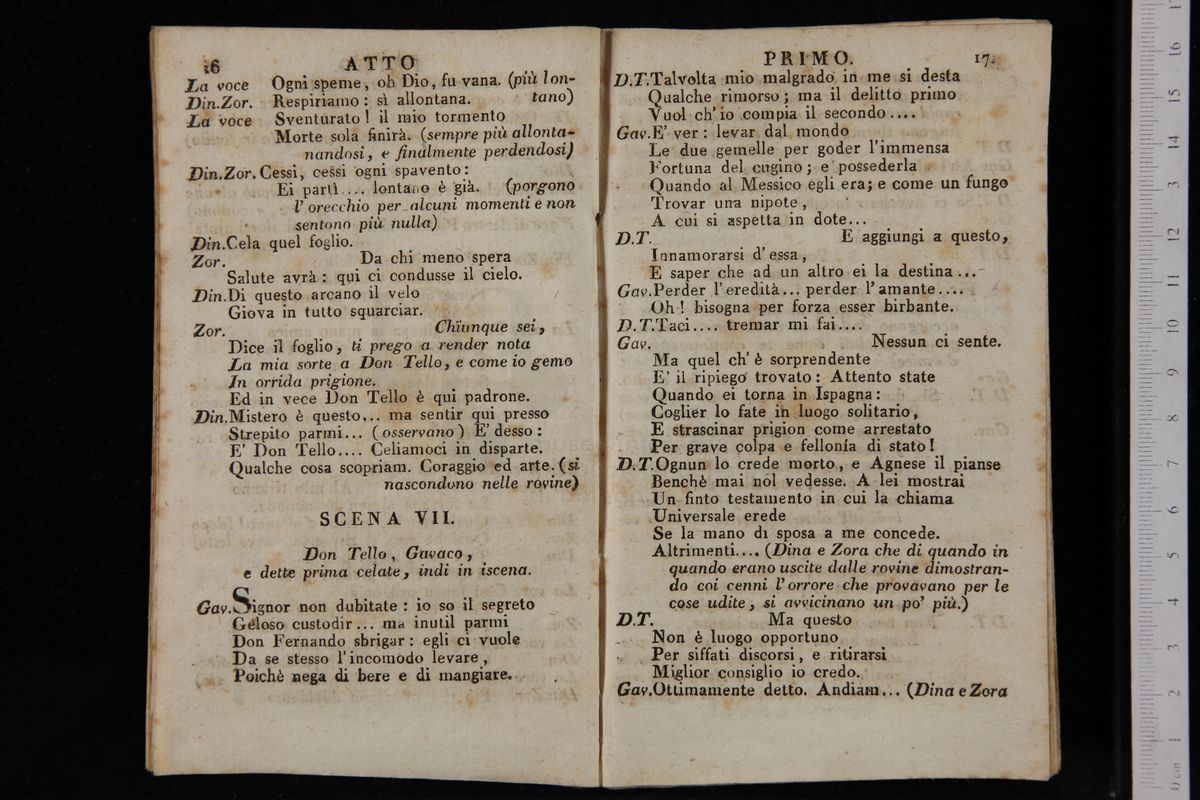 16 ATTO
La voce Ogni speme, oh Dio, fu vana. (più lon-
Din.Zor. Respiriamo: sì allontana. tano)
La voce Sventurato! il mio tormento
Morte sola finirà. (sempre più allonta-
nandosi, e finalmente perdendosi)
Din.Zor. Cessi, cessi ogni spavento:
Ei partì.... lontano è già. (porgono
l'orecchio per alcuni momenti e non
sentono più nulla)
Din.Cela quel foglio.
Zor. Da chi meno spera
Salute avrà: qui ci condusse il cielo.
Din.Di questo arcano il velo
Giova in tutto squarciar.
Zor. Chiunque sei,
Dice il foglio, ti prego a render nota
La mia sorte a Don Tello, e come io gemo
In orrida prigione.
Ed in vece Don Tello è qui padrone.
Din.Mistero è questo... ma sentir qui presso
Strepito parmi... (osservano) E' desso:
E' Don Tello.... Celiamoci in disparte.
Qualche cosa scopriam. Coraggio ed arte. (si
nascondono nelle rovine)
SCENA VII.
Don Tello, Gavaco,
e dette prima celate, indi in iscena.
Gav.Signor non dubitate: io so il segreto
Geloso custodir... ma inutil parmi
Don Fernando sbrigar: egli ci vuole
Da se stesso l'incomodo levare,
Poichè nega di bere e di mangiare.
PRIMO. 17.
D.T.Talvolta mio malgrado in me si desta
Qualche rimorso; ma il delitto primo
Vuol ch'io compia il secondo....
Gav.E' ver: levar dal mondo
Le due gemelle per goder l'immensa
Fortuna del cugino; e possederla
Quando al Messico egli era; e come un fungo
Trovar una nipote,
A cui si aspetta in dote...
D.T. E aggiungi a questo,
Innamorarsi d'essa,
E saper che ad un altro ei la destina...
Gav.Perder l'eredità... perder l'amante....
Oh! bisogna per forza esser birbante.
D.T.Taci.... tremar mi fai....
Gav. Nessun ci sente.
Ma quel ch'è sorprendente
E' il ripiego trovato: Attento state
Quando ei torna in Ispagna:
Coglier lo fate in luogo solitario,
E strascinar prigion come arrestato
Per grave colpa e fellonía di stato!
D.T.Ognun lo crede morto, e Agnese il pianse
Benchè mai nol vedesse. A lei mostrai
Un finto testamento in cui la chiama
Universale erede
Se la mano di sposa a me concede.
Altrimenti.... (Dina e Zora che di quando in
quando erano uscite dalle rovine dimostran-
do coi cenni l'orrore che provavano per le
cose udite, si avvicinano un po' più.)
D.T. Ma questo
Non è luogo opportuno
Per siffati discorsi, e ritirarsi
Miglior consiglio io credo.
Gav.Ottimamente detto. Andiam... (Dina e Zora